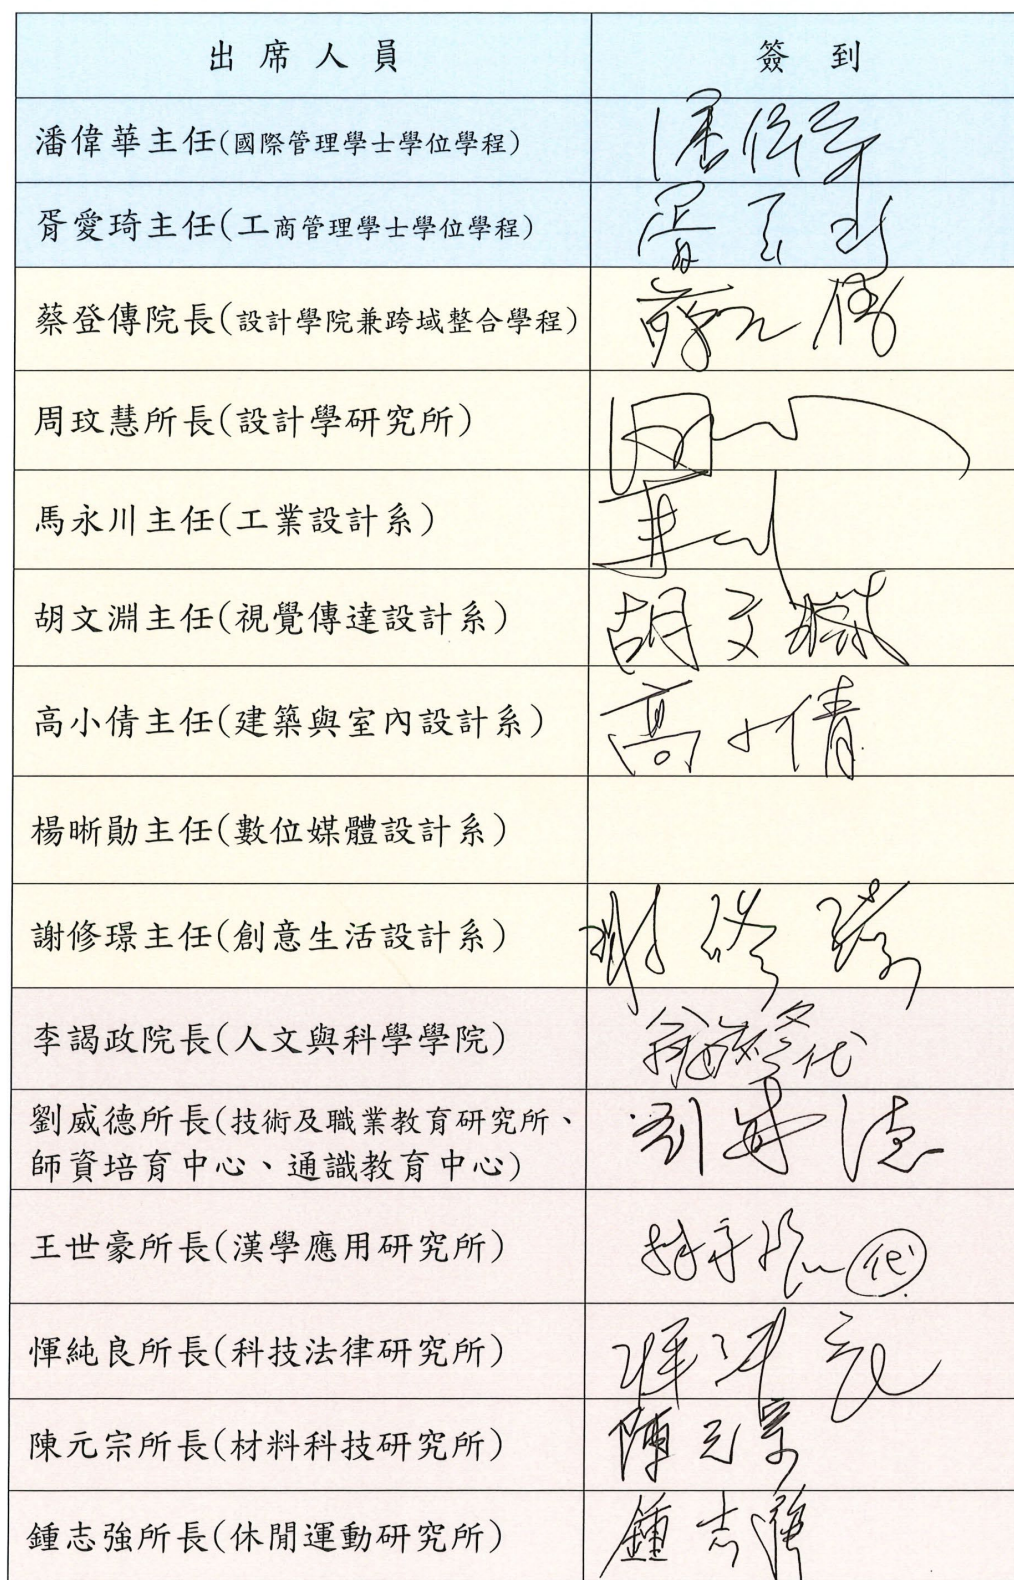 出席人員 簽到
潘偉華主任(國際管理學士學位學程) 潘偉華
胥愛琦主任(工商管理學士學位學程) 胥
蔡登傳院長(設計學院兼跨域整合學程)
周玟慧所長(設計學研究所) 周
馬永川主任(工業設計系)
胡文淵主任(視覺傳達設計系) 胡文淵
高小倩主任(建築與室內設計系) 高小倩
楊晰勛主任(數位媒體設計系)
謝修璟主任(創意生活設計系) 謝修璟
李謁政院長(人文與科學學院) 代
劉威德所長(技術及職業教育研究所、 劉威德
師資培育中心、通識教育中心)
王世豪所長(漢學應用研究所) 代
惲純良所長(科技法律研究所) 惲純良
陳元宗所長(材料科技研究所) 陳元宗
鍾志強所長(休閒運動研究所) 鍾志強